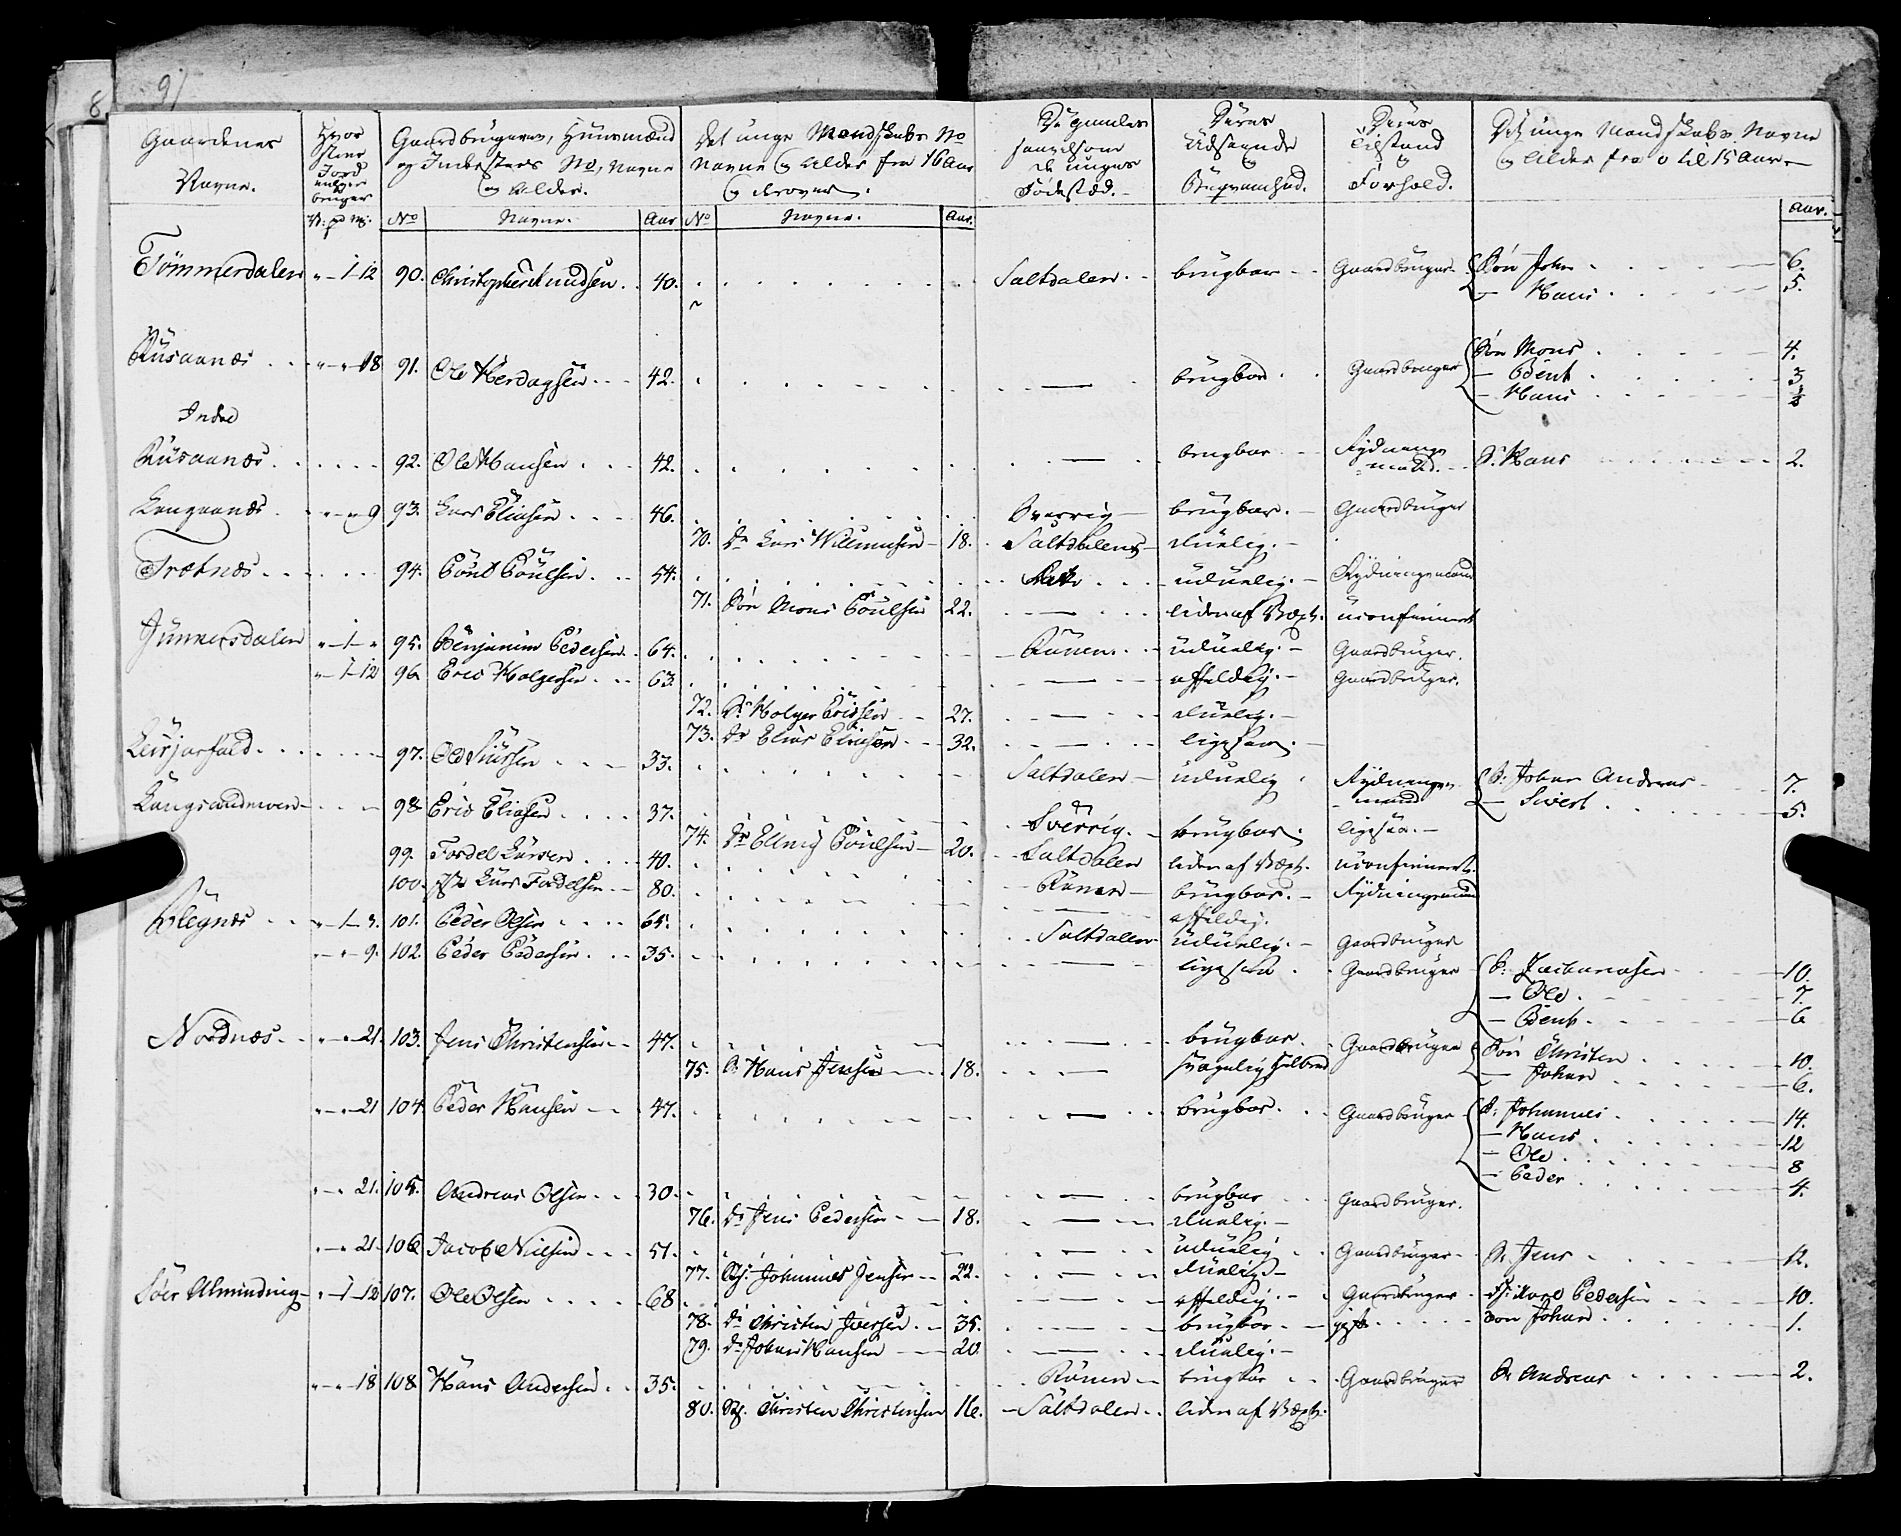 91
8
Gaardenes Navne.
Hvor stor Jord enhver bruger
V: pd mk:
Gaardbrugeres, Huusmænd og Inderster No, Navne og Alder.
No Navne. Aar
Det unge Mandskabs No Navne og Alder fra 16 Aar og derover.
No Navne. Aar.
De gamles saavelsom de unges Fødestæd.
Deres Udseende og Beqvemhed.
Deres Tilstand og Forhold.
Det unge Mandskabs Navne og Alder fra 0 til 15 Aar
Aar.
Tömmerdalen " - 1 - 12 90. Christopher Knudsen 40. Saltdalen brugbar Gaardbruger Søn John 6.
— Hans 5.
Rusaanæs " - " 18 91. Ole Herdagsen 42. — brugbar Gaardbruger Søn Mons 4.
— Bent 3
— Hans
Indre
Rusaanæs 92. Ole Hansen 42. — brugbar Rydningsmand S. Hans 2.
Langaanæs " - " 9 93. Lars Eliasen 46. Sverrig brugbar. Gaardbruger
70. Dr Lars Willumsen 18. Saltdalen duelig.
Trætnæs 94. Poul Poulsen 54. uduelig. Rydningsmand
71. Søn Mons Poulsen 22. — liden af Væxt. uconfirmeret
Junkersdalen " - 1 - " 95. Benjamin Pedersen 64. Ranen uduelig. Gaardbruger.
" - 1 - 12 96. Eric Holgersen 63. — affældig. Gaardbruger.
72. S. Holger Ericsen 27. — duelig.
73. Dr Elias Eliasen 32. — ligesaa.
97. Ole Siursen 33. Saltdalen uduelig Rydningsmand S. Johan Andreas 7.
— Sivert 5.
98 Eric Eliasen 37. Sverrig. brugbar. ligesaa.
74. Dr Elling Poulsen 20. Saltdalen liden af Væxt. uconfirmeret.
99. Fordel Larsen 40. Ranen brugbar. Rydningsmand
100. Lars Fordelsen 80. — affældig.
" - 1 - 3. 101. Peder Olsen 65. Saltdalen uduelig. Gaardbruger
" - " 9. 102. Peder Pedersen 35. — ligesaa Gaardbruger S. Zachariasen 10.
— Ole 7.
— Bent 6
Nordnæs " - " 21. 103. Jens Christensen 47. — brugbar. Gaardbruger Søn Christen 10.
75. S. Hans Jensen 18. — svagelig Helbred — Johan 6.
" - " 21 104 Peder Hansen 47. — brugbar. Gaardbruger S. Johannes 14.
— Hans 12
— Ole 8
— Peder 4.
" - " 21. 105. Andreas Olsen 30. — brugbar Gaardbruger.
76. Dr Jens Pedersen 18. — duelig.
" - " 21 106 Jacob Nielsen 51. — uduelig Gaardbruger S. Jens 12.
77. Johannes Jensen 22. — duelig.
Almindning " - 1 - 12 107. Ole Olsen 68 — affældig. Gaardbruger Pedersen 10.
78. Dr Christen Iversen 35. — brugbar gift Søn Johan 1.
79. Dr Johan Hansen 20 — duelig.
" - " 18 108 Hans Andersen 35. Ranen brugbar Gaardbruger S. Andreas 2.
80. Christen Christensen 16. Saltdalen liden af Væxt.